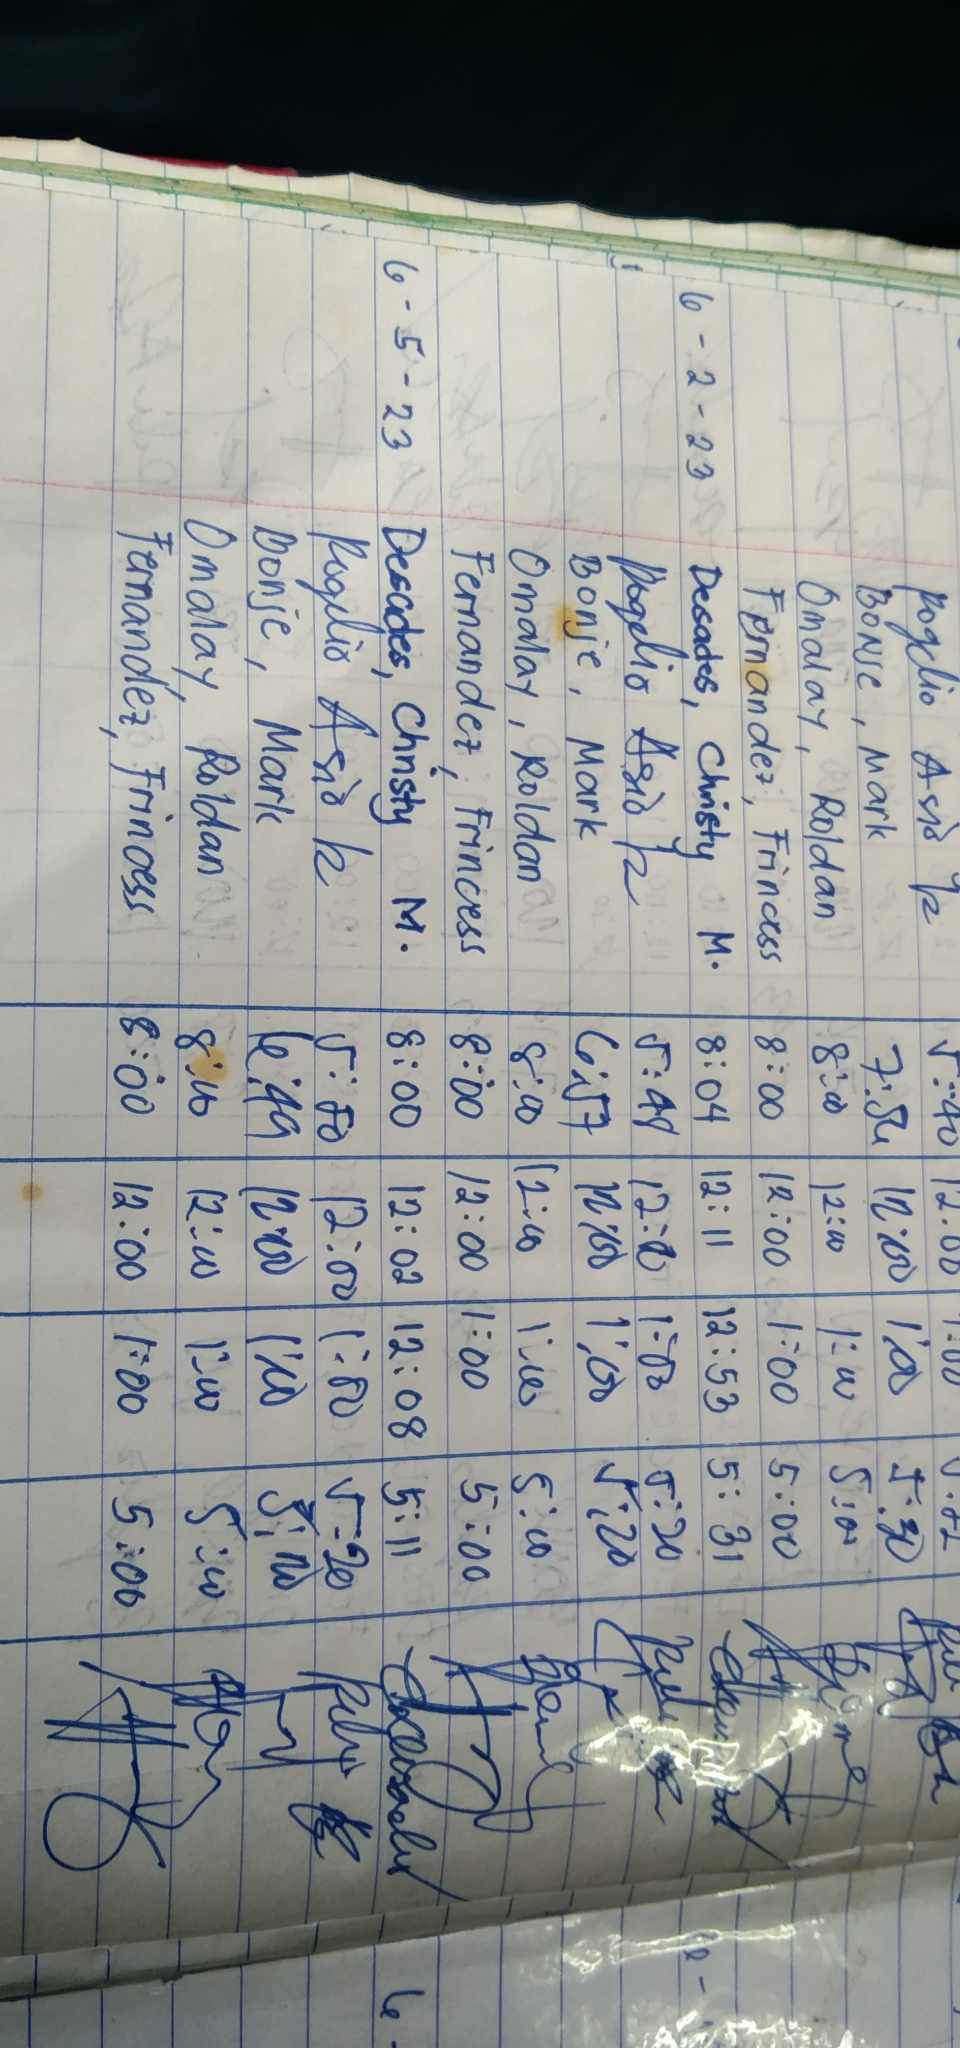 Rogelio Asio Jr 5:40 12:00 1:00
Bonje, Mark 7:54 12:00 1:00 5:30
Omalay, Roldan 8:00 12:00 1:00 5:00
Fernandez, Princess 8:00 12:00 1:00 5:00
6-2-23 Desades, Christy M. 8:04 12:11 12:53 5:31
Rogelio Asio Jr 5:48 12:00 1:00 5:20
Bonje, Mark 6:57 12:00 1:00 5:20
Omalay, Roldan 8:00 12:00 1:00 5:00
Fernandez, Princess 8:00 12:00 1:00 5:00
6-5-23 Desades, Christy M. 8:00 12:02 12:08 5:11
Rogelio Asio Jr 5:50 12:00 1:00 5:20
Bonje, Mark 6:49 12:00 1:00 5:20
Omalay, Roldan 8:00 12:00 1:00 5:00
Fernandez, Princess 8:00 12:00 1:00 5:00